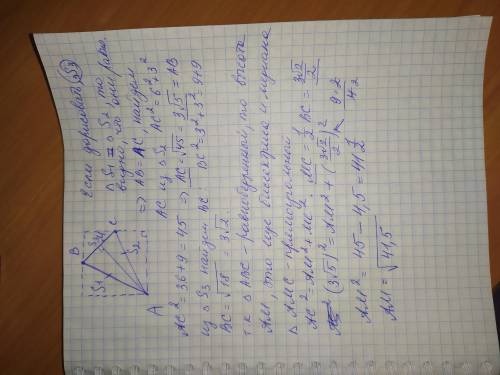 Если дорисовать S3
△ S1 = △ S2 то
видно, что они равн.
=> AB=AC, найдём
AC из △ S2 AC² = 6² + 3²
AC² = 36+9 = 45 => AC = √45 = 3√5 = AB
из △ S3 найдём BC. BC² = 3²+3² = 9+9
BC = √18 = 3√2
т.к △ ABC - равнобедренный, то высота
AM, это ещё биссектриса и медиана
△ AMC - прямоугольный
AC² = AM² + MC². MC = 1/2 BC = 3√2/2
(3√5)² = AM² + (3√2/2)²
9·2
4·2
AM² = 45 - 4,5 = 41 1/2
AM = √41,5
B
S1
S3
C
S2
A